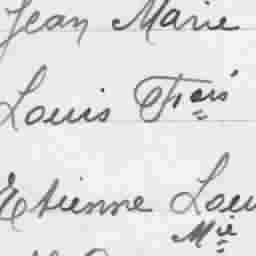 Jean Marie
Louis Fcois
Etienne Lou
Mie